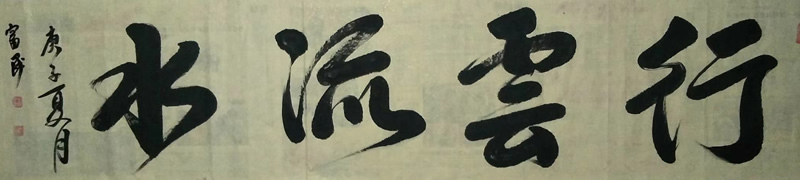 行雲流水
庚子夏月
富民